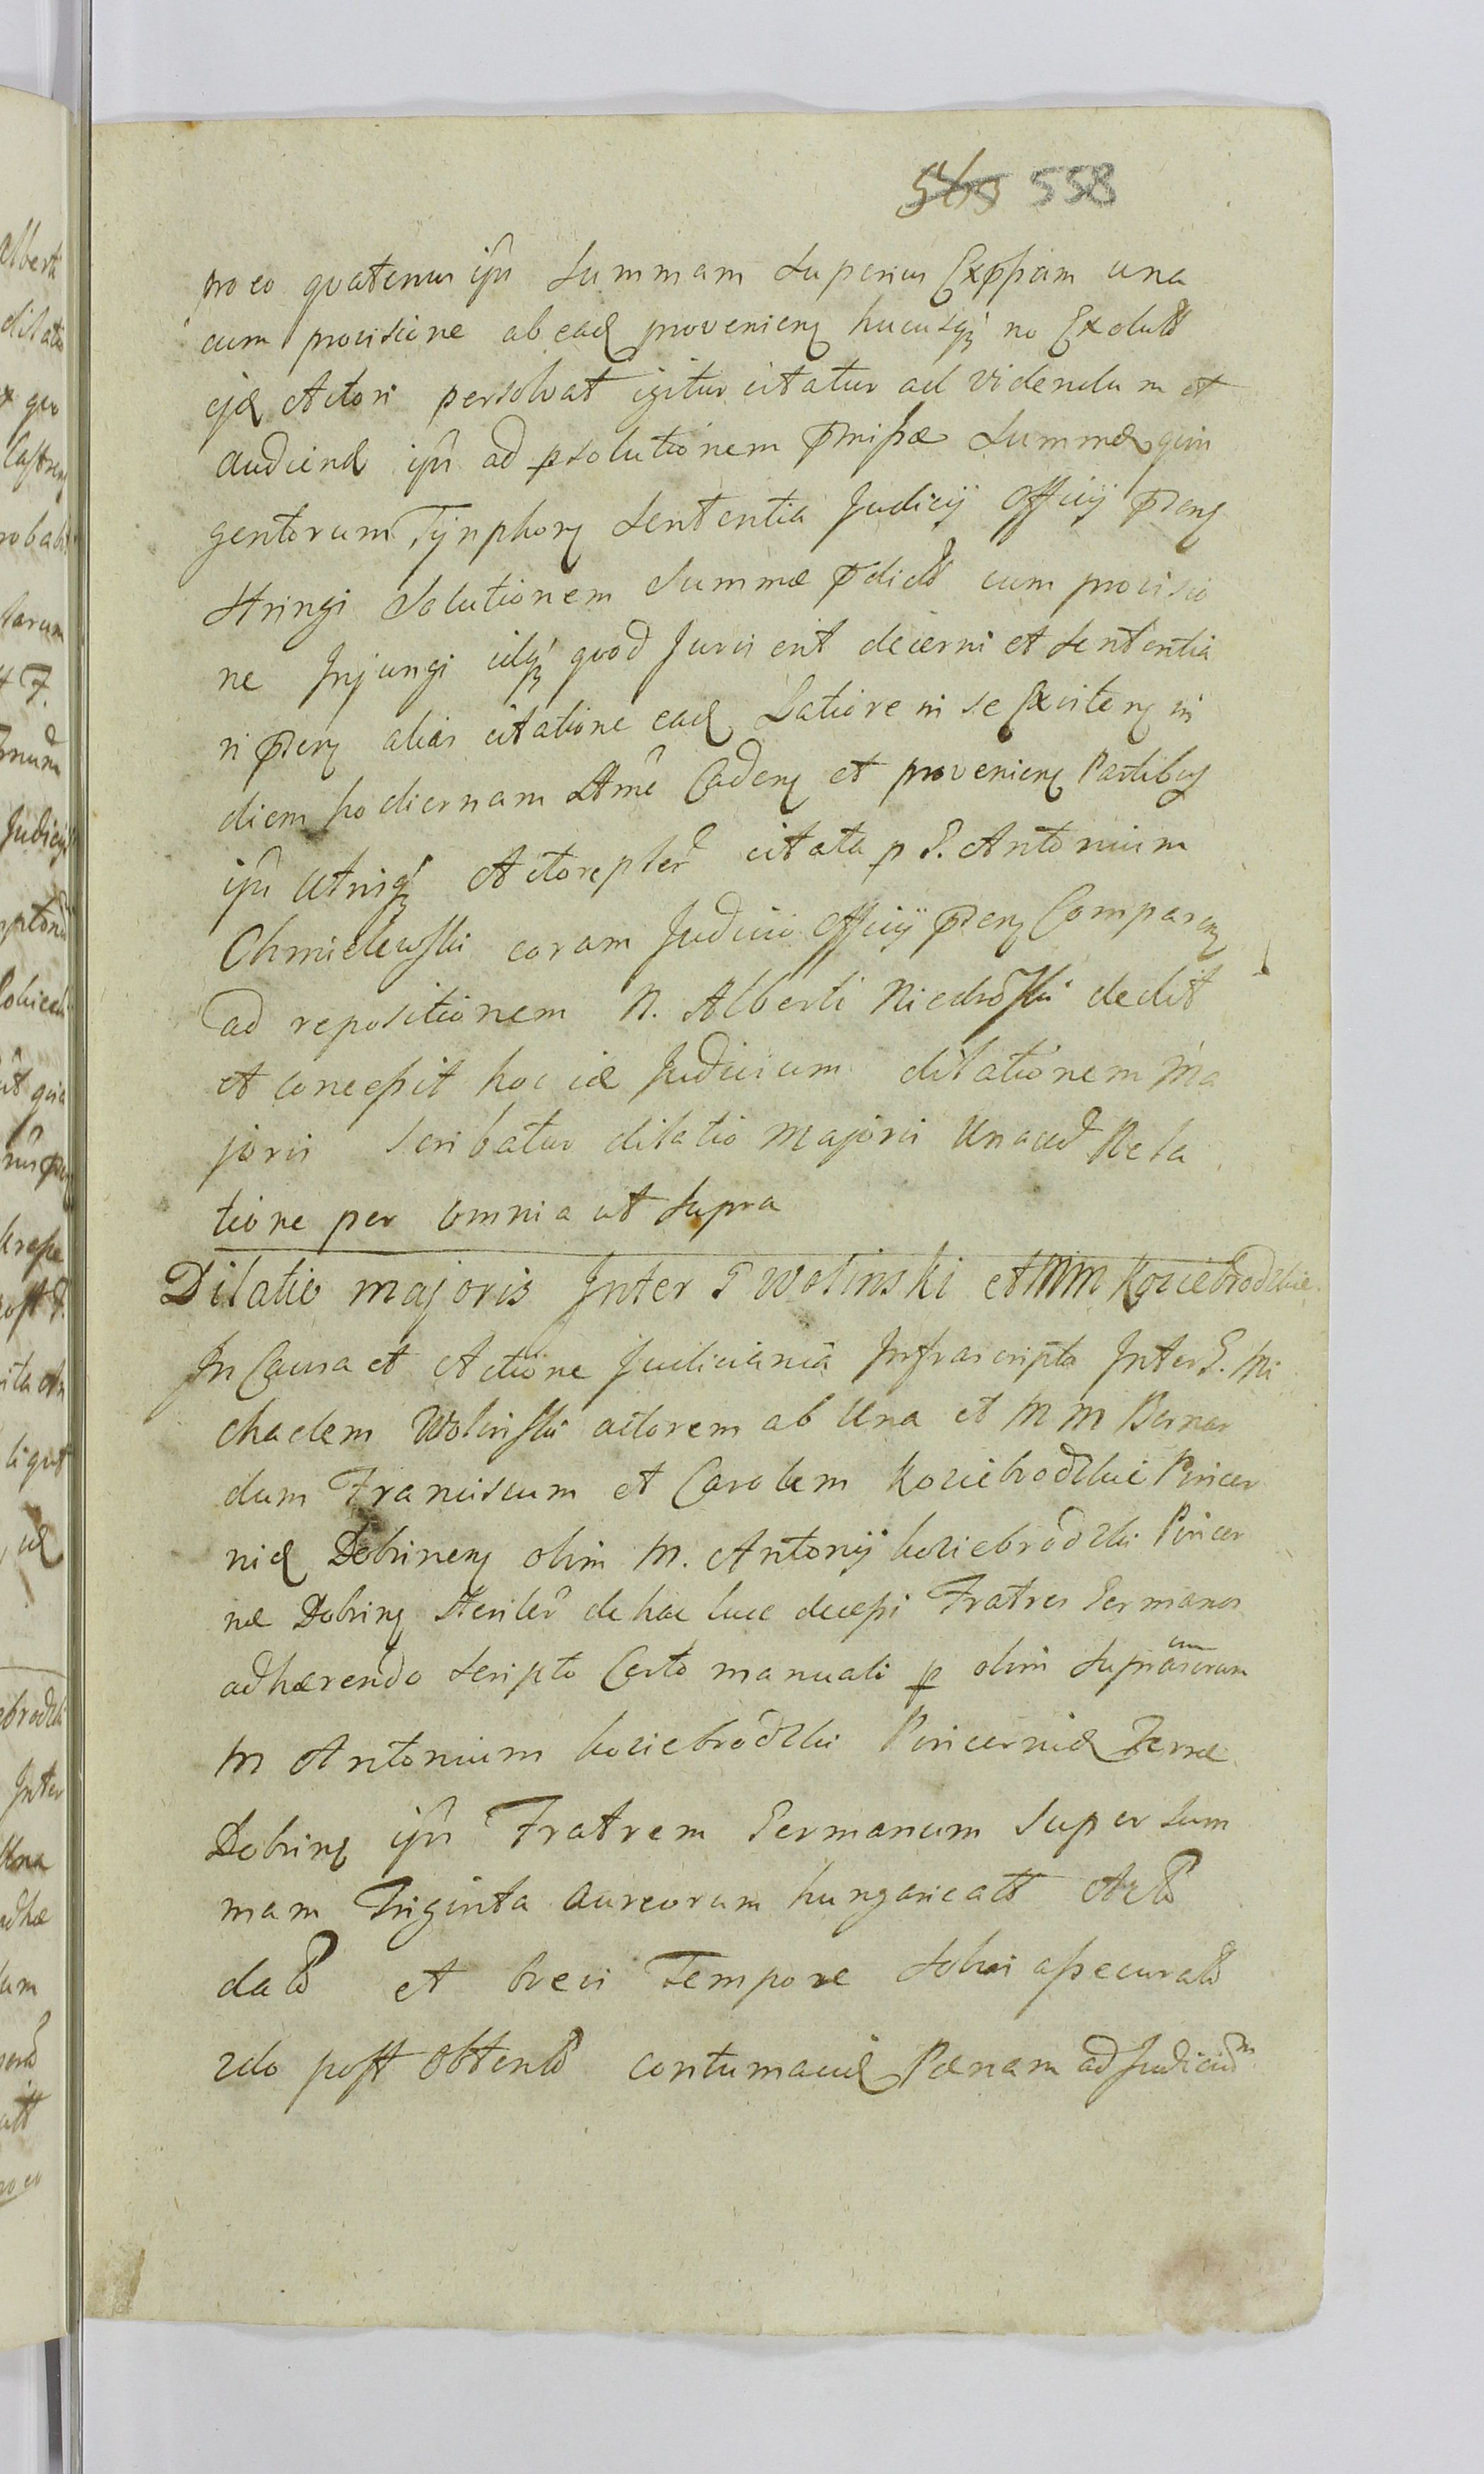 558
pro eo qvatenus ipsi Summam Superius Exppsam una
cum provisione ab eadꝫ provenienꝫ hucusqꝫ no Exolutꝫ
ejdꝫ Actori persolvat igitur citatur ad videndum et
audiendꝫ ipsi ad psolutionem pmissæ Summæ qvin
gentorum Tynphorꝫ Sententia Judicij Officij psenꝫ
Stringi Solutionem Summæ pdictꝫ cum provisio
ne Jnjungi idqꝫ qvod Juris erit decerni et Sententia
ri psenꝫ alias citatione eadꝫ Latiore in se Existenꝫ in
diem hodiernam Ame Cadenꝫ et provenienꝫ Partibus
ipsis Utrisqꝫ Actore pter citata p G. Antonium
Chmielewski coram Judicio Officij psenꝫ Comparenꝫ
ad repositionem N. Alberti Niedroski dedit
et concessit hoc idꝫ Judicium dilationem Ma
joris Scribatur dilatio Majoris Unacū Rela
tione per omnia ut Supra
Dilatio majoris Jnter G Wolinski et MM Koziebrodzkie
Jn Causa et Actione Judiciaria Jnfrascripta Jnter G. Mi
chaelem Wolinski actorem ab Una et M M Bernar
dum Franciscum et Carolum Koziebrodzkie Pincer
nidꝫ Dobrinenꝫ olim M. Antonij Koziebrodzki Pincer
næ Dobrinꝫ Steriler de hac luce decessi Fratres Germanos
adhærendo Scripto Certo manuali p olim Supra
M Antonium Koziebrodzki Pincernidꝫ Terræ
Dobrinꝫ ipsi Fratrem Germanum Super Sum
mam Triginta Aureorum hungaricatt Actꝫ
datꝫ et brevi Tempore Solvi assecuratꝫ
zdo post Obtentꝫ contumaciæ Pænam ad Judiciūm